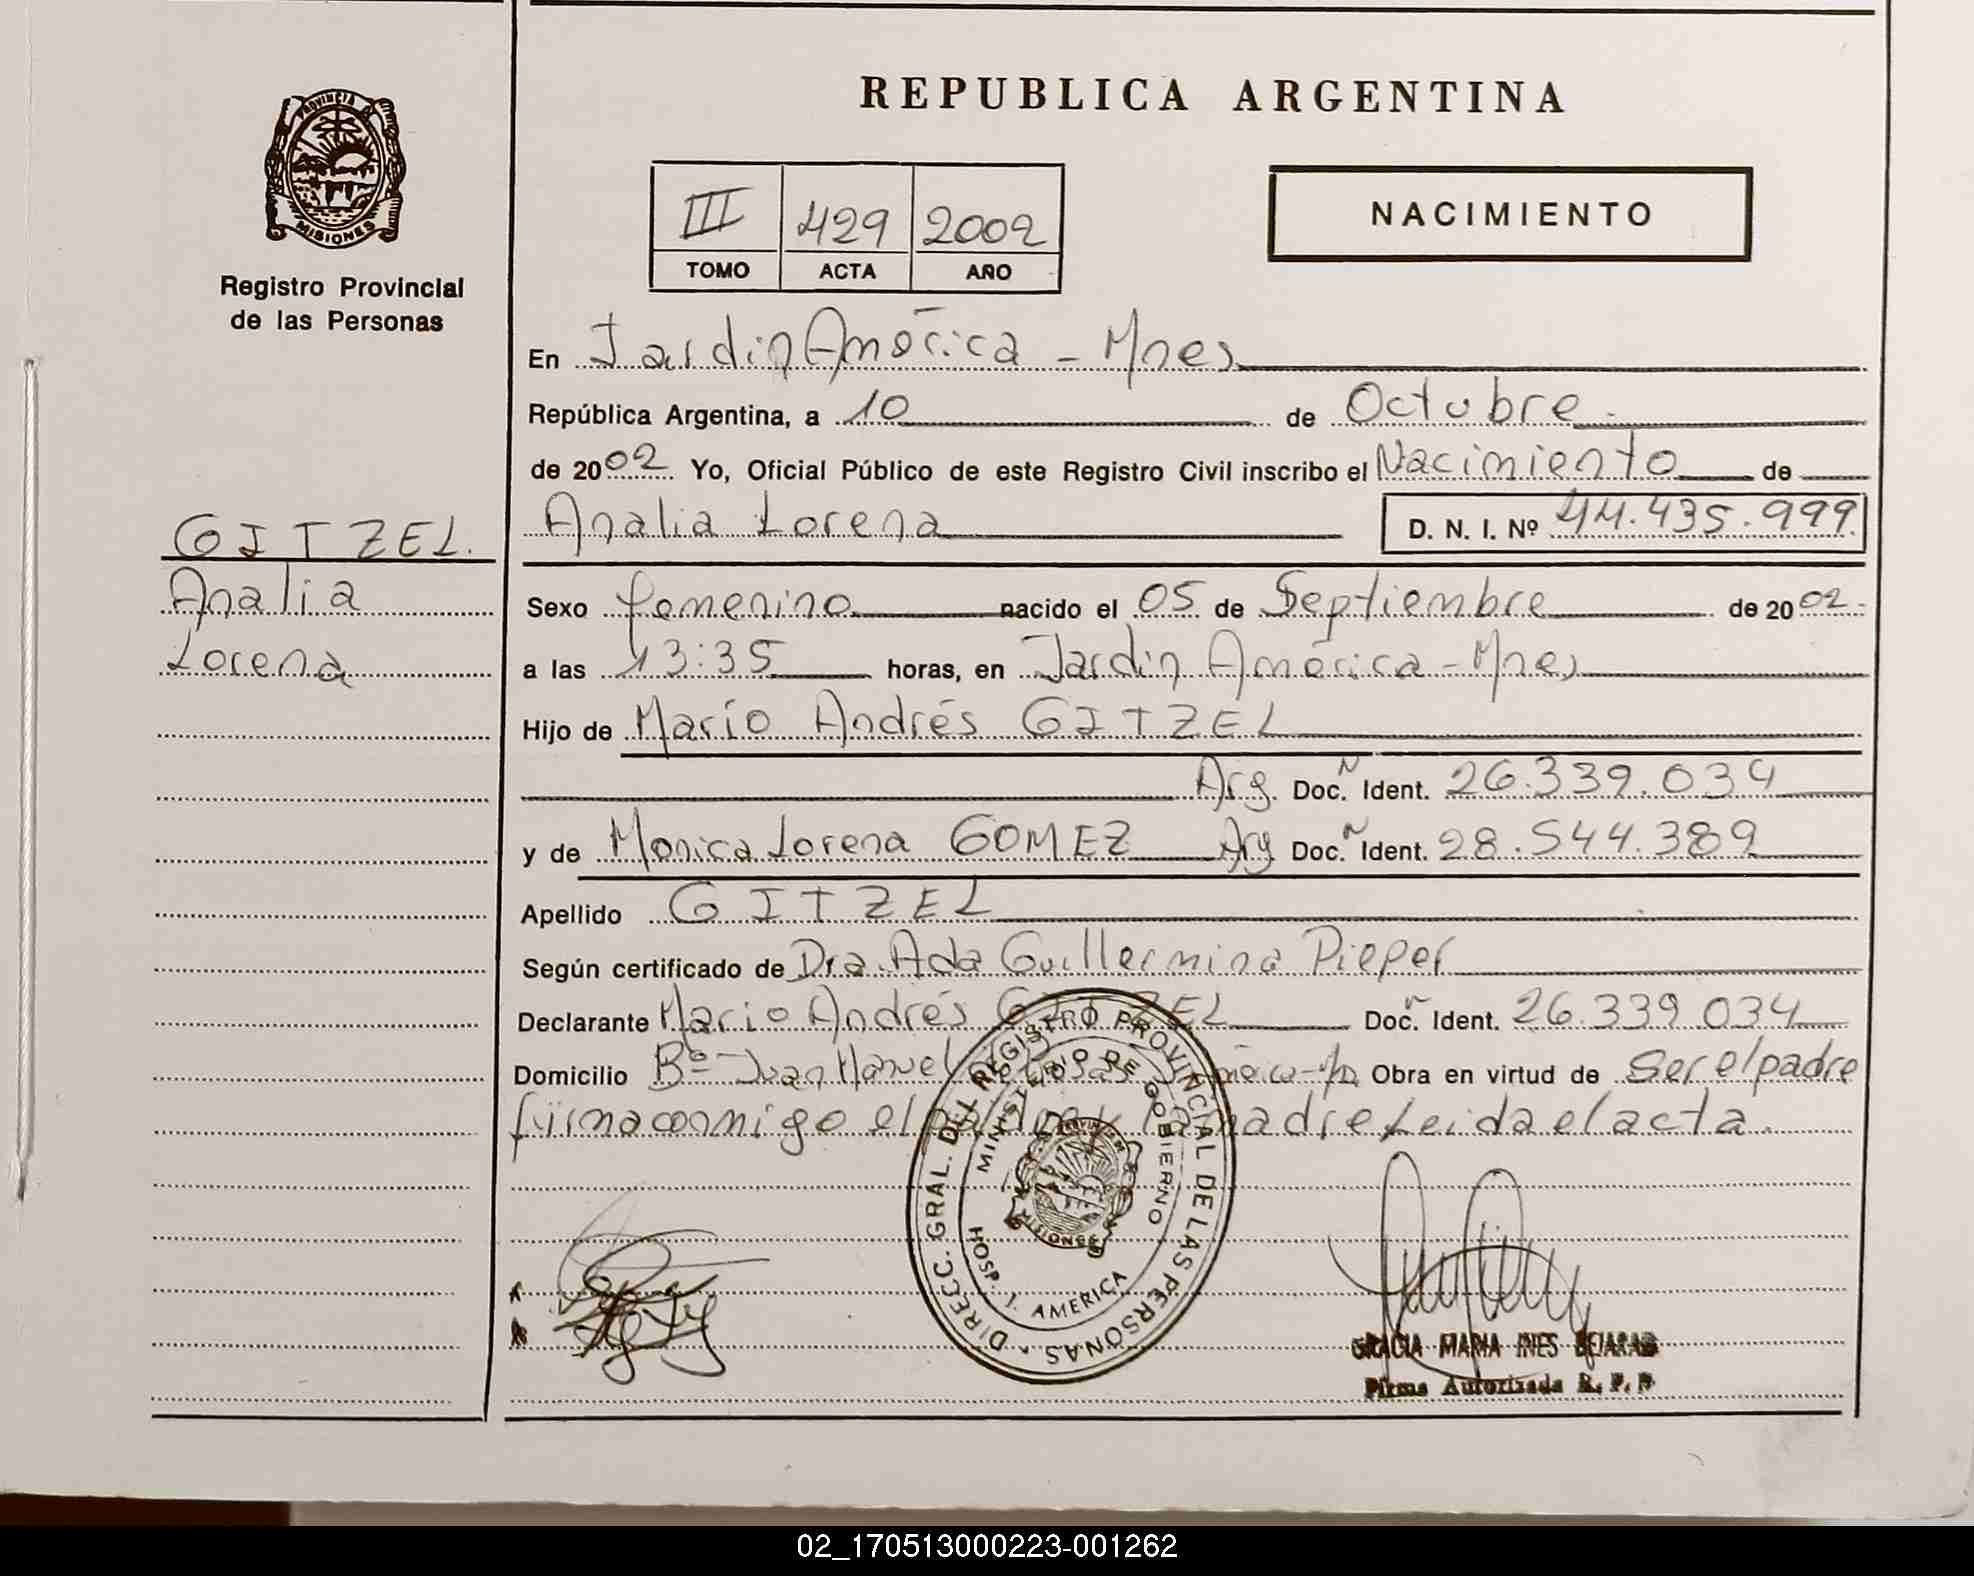 REPUBLICA ARGENTINA
PROVINCIA
MISIONES
Registro Provincial
de las Personas
III 429 2002
TOMO ACTA AÑO
NACIMIENTO
En Jardin América - Mnes
República Argentina, a 10 de Octubre
de 2002 Yo, Oficial Público de este Registro Civil inscribo el Nacimiento de
Analia Lorena D. N. I. Nº 44.435.999
GITZEL
Analia
Lorena
Sexo femenino nacido el 05 de Septiembre de 2002
a las 13:35 horas, en Jardin América - Mnes
Hijo de Mario Andrés GITZEL
Arg. Doc. Ident. 26.339.034
y de Monica Lorena GOMEZ Arg Doc. Ident. 28.544.389
Apellido GITZEL
Según certificado de Dra. Ada Guillermina Pieper
Declarante Mario Andrés GITZEL Doc. Ident. 26.339.034
Domicilio Bº Juan Manuel de Rosas Obra en virtud de Ser el padre
firma conmigo el padre y la madre Leida el acta.
DIRECC. GRAL. DEL REGISTRO PROVINCIAL DE LAS PERSONAS
MINISTERIO DE GOBIERNO
HOSP. J. AMERICA
PROVINCIA
MISIONES
GRACIA MARIA INES BEJARANO
Firma Autorizada R. P. P
02_170513000223-001262